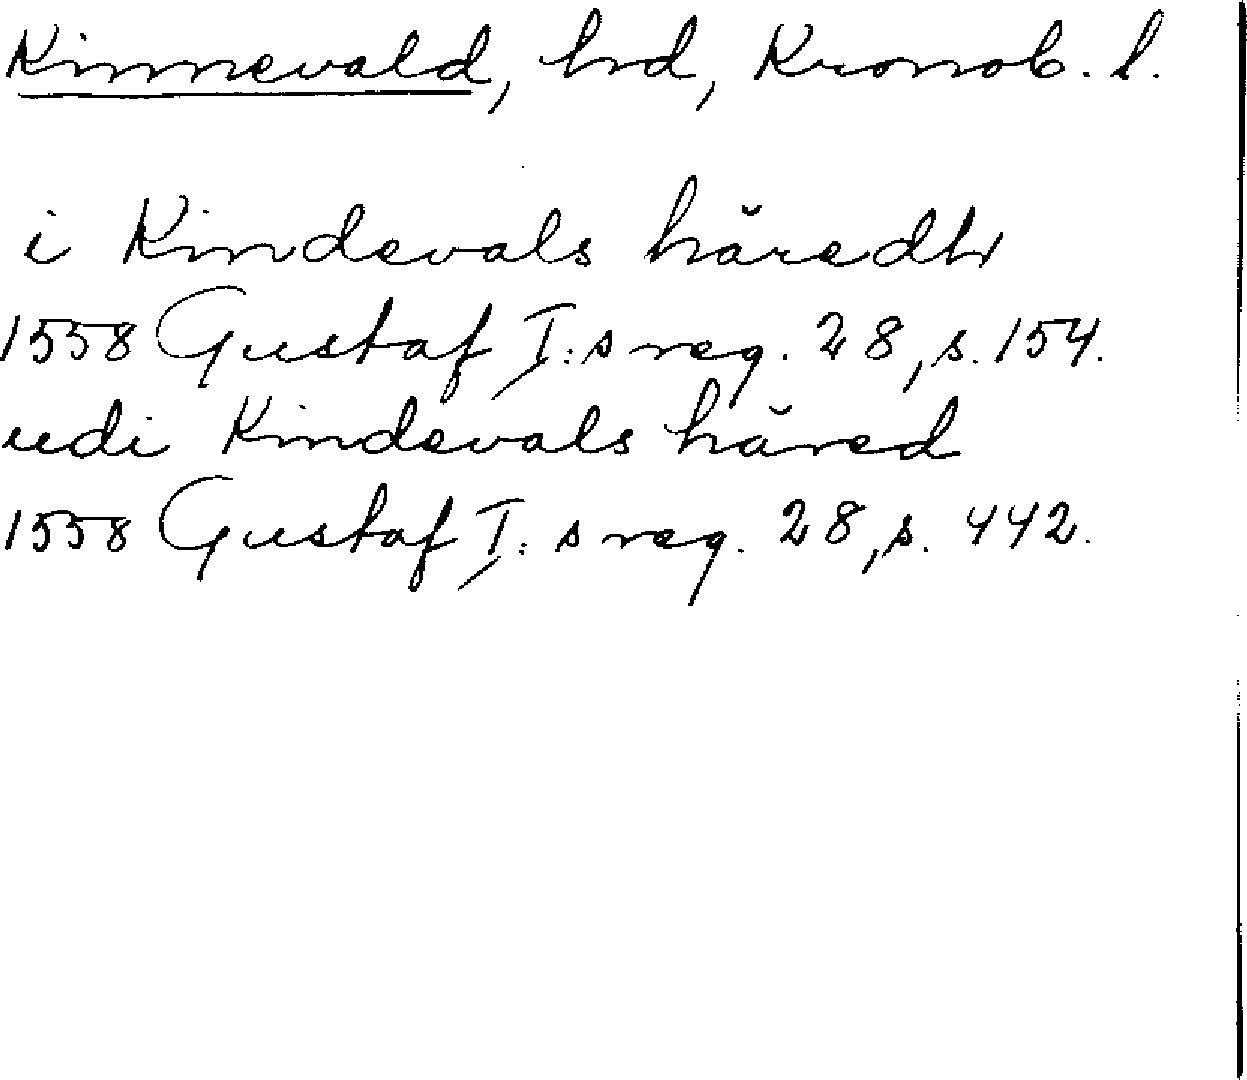 Kinnevald, hrd, Kronob. l.
i Kindevals häredh
1558 Gustaf I:s reg. 28, s. 154.
udi Kindevals häred
1558 Gustaf I:s reg. 28, s. 442.